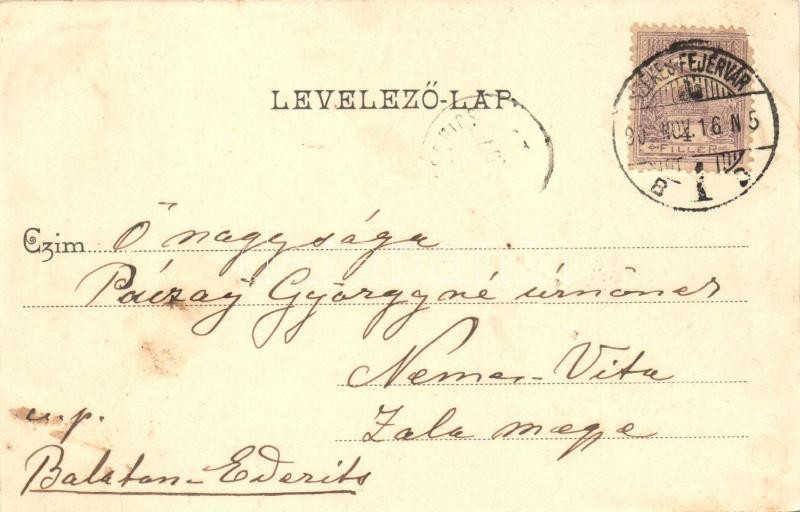 LEVELEZŐ-LAP
SZÉKES-FEJÉRVÁR
NOV. 16 N 5
B 1
FILLÉR
Czim Ő nagysága
Pávzay Györgyné úrnőnek
Nemes-Vita
Zala megye
u.p.
Balaton-Ederits